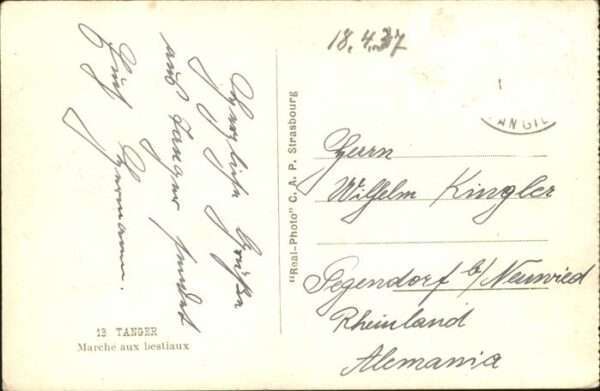 18.4.37
Herzliche Grüße
aus Tanger sendet
Euch Hermann.
"Real-Photo" C. A. P. Strasbourg
Herrn
Wilhelm Kingler
Segendorf b/Neuwied
Rheinland
Alemania
13 TANGER
Marche aux bestiaux